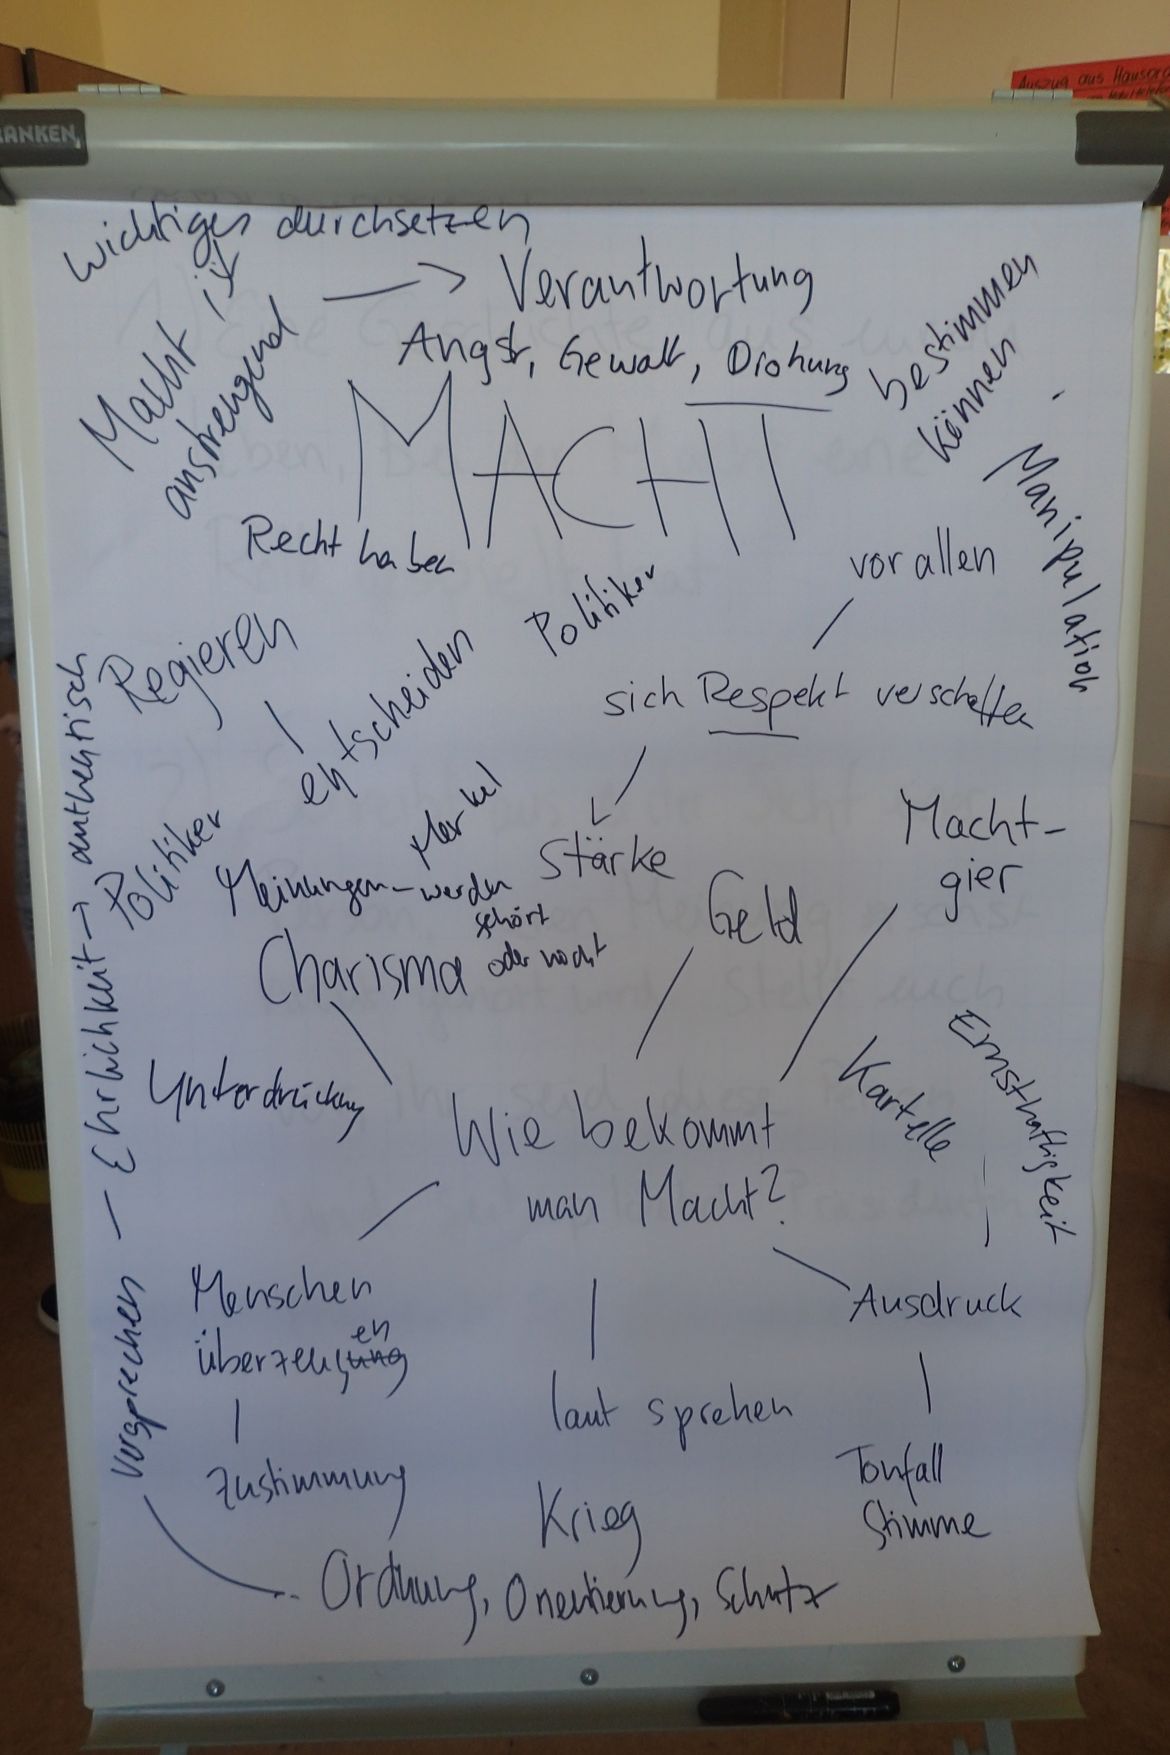 RANKEN
Auszug aus Hausord
wichtiges durchsetzen
Macht ist
anstrengend
Verantwortung
Angst, Gewalt, Drohung
bestimmen
können
MACHT
Recht haben
Manipulation
vor allen
Politiker
Regieren
entscheiden
sich Respekt verschaffen
Merkel
Stärke
Macht-
gier
Politiker
Meinungen - werden
gehört
oder nicht
Geld
Charisma
Unterdrückung
Wie bekommt
man Macht?
Kartelle
Ernsthaftigkeit
versprechen - Ehrlichkeit → authentisch
Menschen
überzeugen
Ausdruck
laut sprehen
Zustimmung
Tonfall
Stimme
Krieg
Ordnung, Orientierung, Schutz